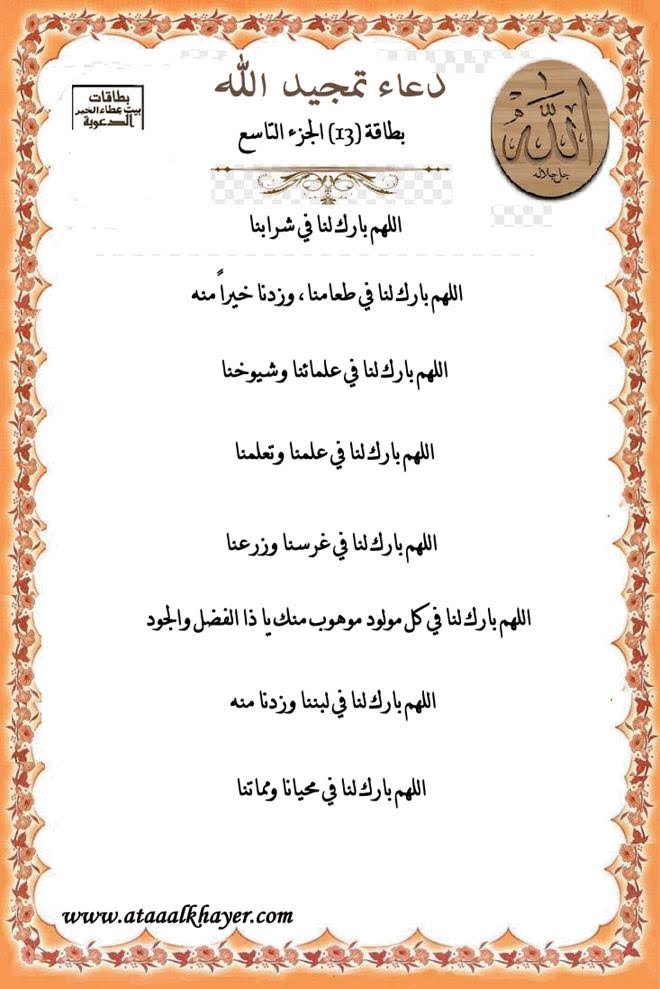 دعاء تمجيد الله
بطاقات
بيت عطاء الخير
الدعوية
الله
جل جلاله
بطاقة (13) الجزء التاسع
اللهم بارك لنا في شرابنا
اللهم بارك لنا في طعامنا ، وزدنا خيراً منه
اللهم بارك لنا في علمائنا وشيوخنا
اللهم بارك لنا في علمنا وتعلمنا
اللهم بارك لنا في غرسنا وزرعنا
اللهم بارك لنا في كل مولود موهوب منك يا ذا الفضل والجود
اللهم بارك لنا في لبننا وزدنا منه
اللهم بارك لنا في محيانا ومماتنا
www.ataaalkhayer.com